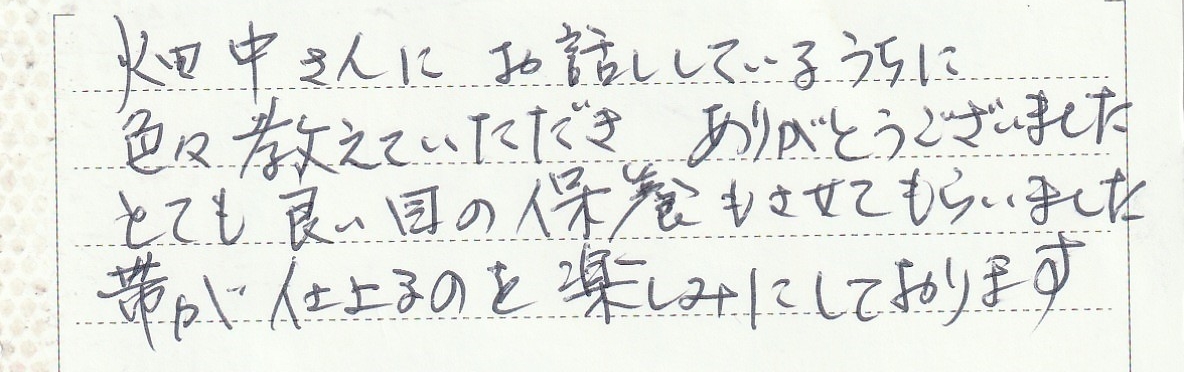 畑中さんに お話ししているうちに
色々教えていただき ありがとうございました
とても良い目の保養もさせてもらいました
帯が仕上るのを楽しみにしております